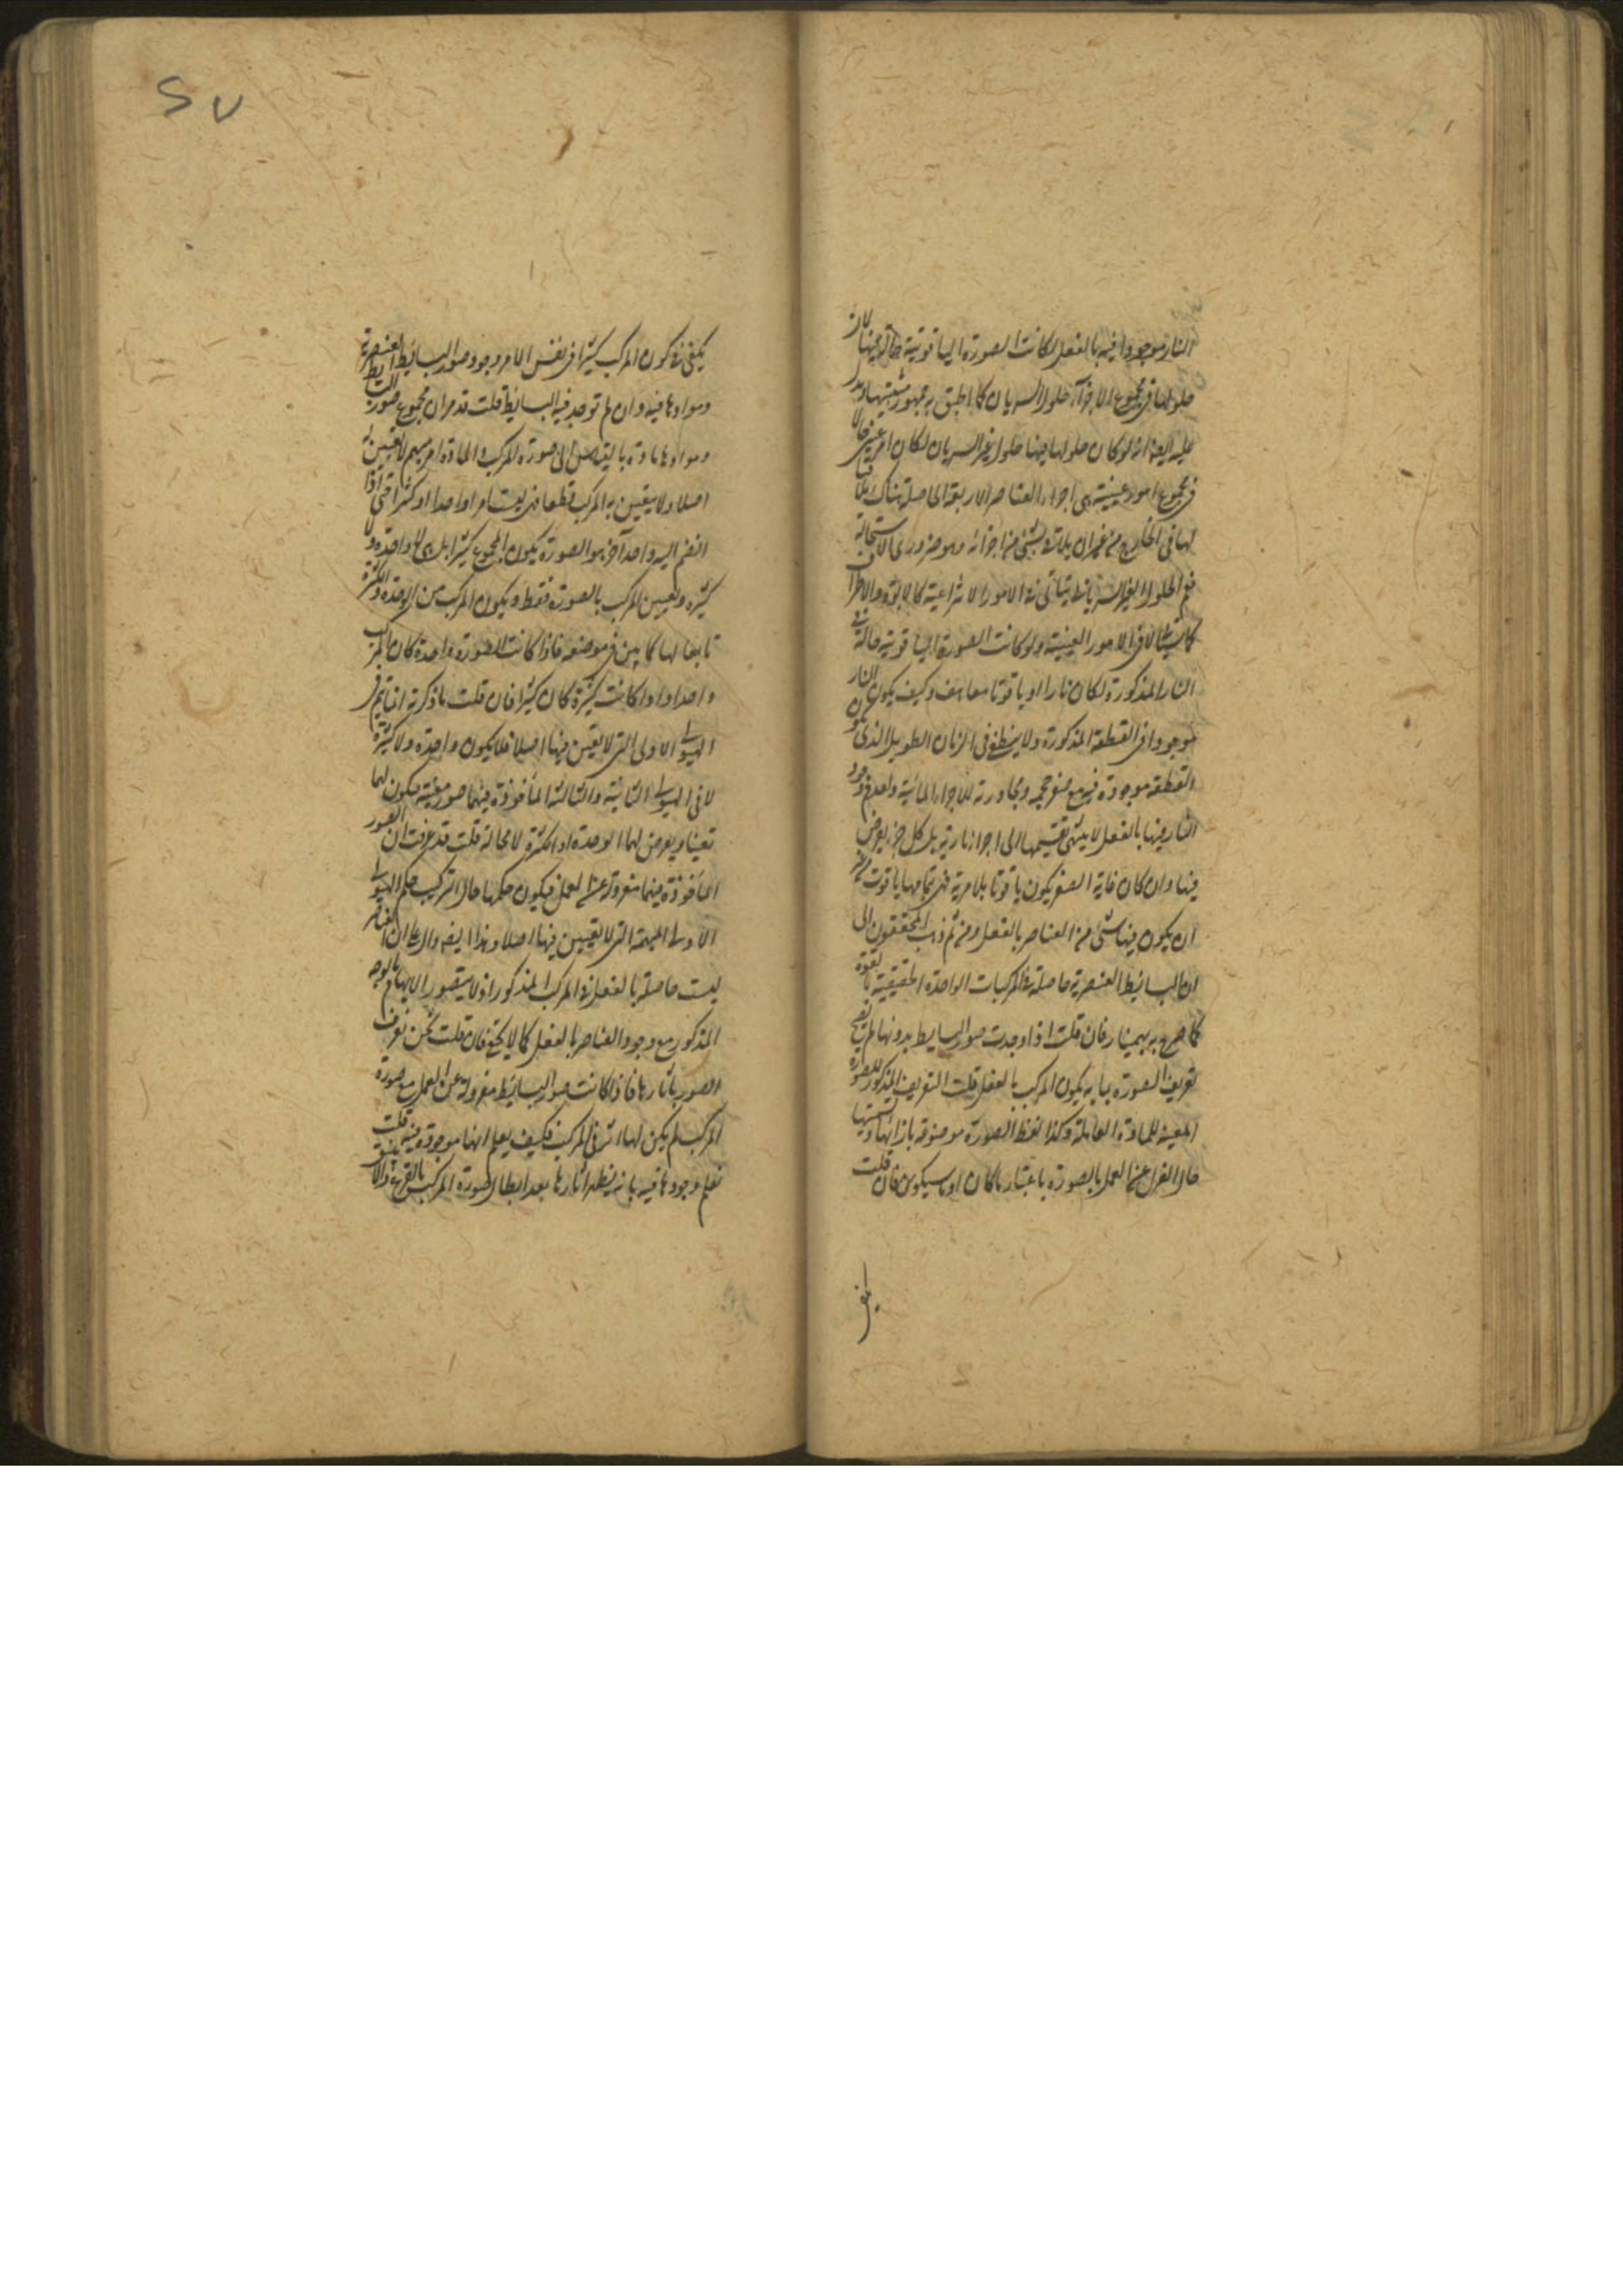 النار موجودا فيه بالفعل لكانت الصورة الياقوتية حالة فيها لان
حلولها فى مجموع الاجزاء حلول السريان كما اطبق به جمهور مثبتيها ويدل
عليه ايضا انه لو كان حلولها فيها حلولا غير السريان لكان امر عينى حالا
فى مجموع امور عينية هى اجزاء العناصر الاربعة الحاصلة هناك
لها فى الخارج من غير ان يلاقى بشىء من اجزائه وهو ضرورى الاستحالة
نعم الحلول الغير السريانى يتاتى فى الامور الانتزاعية كالابوة
لا فى الامور العينية ولو كانت الصورة الياقوتية حالة فى
النار المذكورة لكان نارا او ياقوتا معا هف وكيف يكون النار
موجودا فى القطعة المذكورة ولا ينطفى فى الزمان الطويل الذى تكون
القطعة موجودة فيه مع صغر حجمه ومجاورته للاجزاء المائية ولعدم وجود
النار فيها بالفعل لا ينتهى تقسيمها الى اجزاء نارية بل كل جزء يفرض
فيها وان كان غاية الصغر يكون ياقوتا بلا مرية فهى بتمامها ياقوت من غير
ان يكون فيها شىء من العناصر بالفعل ومن ثم ذهب المحققون الى
ان البسائط العنصرية حاصلة فى المركبات الواحدة الحقيقية بالقوة
كما صرح به بهمنيار فان قلت اذا وجدت صور البسايط بدونها لم يصح
تعريف الصورة بما به يكون المركب بالفعل قلت التعريف المذكور للصورة
المعينة للمادة العاملة وكذا لفظ الصورة موضوعة بازائها وتسميتها
حال العزل عن العمل بالصورة باعتبار ما كان او ما سيكون فان قلت
يكفى فى كون المركب كثيرا فى نفس الامر وجود صور البسائط العنصرية
وموادها فيه وان لم توجد فيه البسائط قلت قد مر ان مجموع صور البسايط
وموادها مادة بالقياس الى صورة المركب والمادة امر مبهم لا تعين له
اصلا ولا يتعين به المركب قطعا فهى ليست امرا واحدا او كثيرا حتى اذا
انضم اليه واحد آخر هو الصورة يكون المجموع كثيرا بل هى لا واحدة ولا
كثيرة وتعين المركب بالصورة فقط ويكون المركب من الوحدة والكثرة
تابعا لها كما بين فى موضعه فاذا كانت الصورة واحدة كان المركب
واحدا واذا كانت كثيرة كان كثيرا فان قلت ما ذكرته انما يتم فى
الهيولى الاولى التى لا تعين فيها اصلا فلا يكون واحدة ولا كثيرة
لا فى الهيولى الثانية والثالثة الماخوذة فيهما صور معينة فيكون لهما
تعينا ويعرض لهما الوحدة او الكثرة لا محالة قلت قد عرفت ان الصور
الماخوذة فيهما معزولة عن العمل فيكون حكمها حال التركيب حكم الهيولى
الاولى المبهمة التى لا تعين فيها اصلا وهذا ايضا دال على ان العناصر
ليست حاصلة بالفعل فى المركب المذكور اذ لا يتصور الابهام بالوجه
المذكور مع وجود العناصر بالفعل كما لا يخفى فان قلت نحن نعرف
الصور بآثارها فاذا كانت صور البسائط معزولة عن العمل مع صورة
المركب لم يكن لها اثر فى المركب فكيف يعلم انها موجودة فيه قلت
نعلم وجودها فيه بانه يظهر آثارها بعد ابطال صورة المركب بالقرع